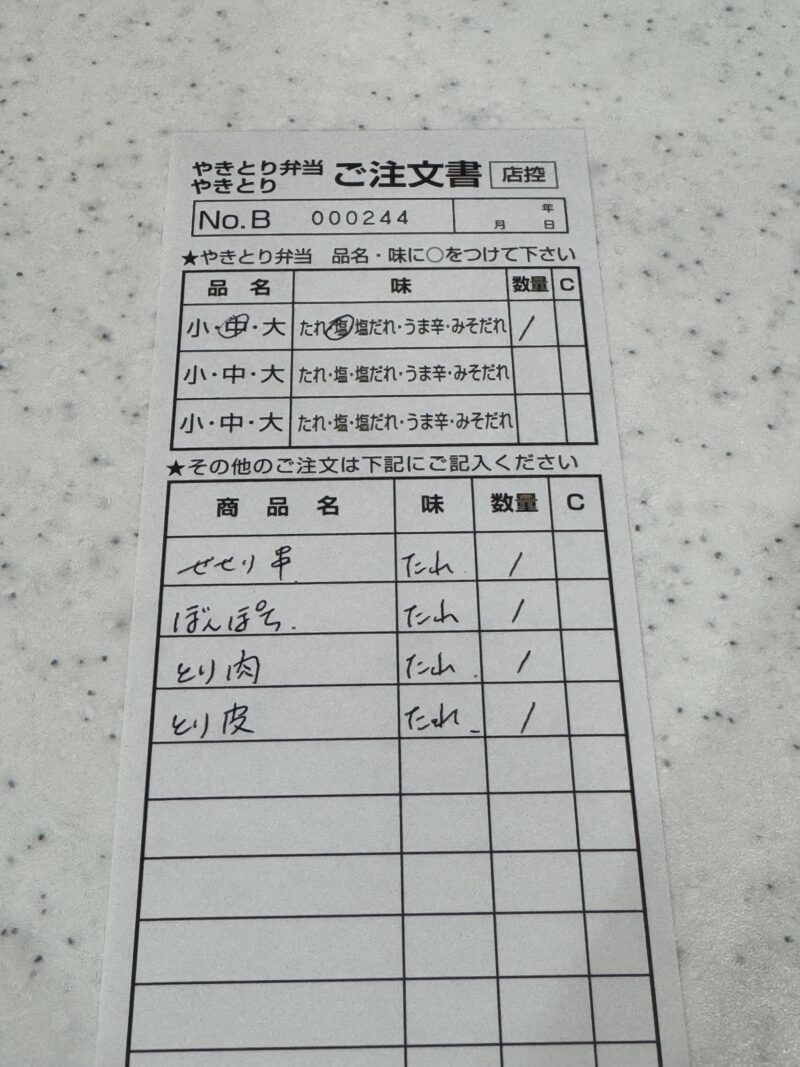 やきとり弁当
やきとり
ご注文書 店控
No.B 000244 年 月 日
★やきとり弁当 品名・味に○をつけて下さい
品名 味 数量 C
小・中・大 たれ・塩・塩だれ・うま辛・みそだれ /
小・中・大 たれ・塩・塩だれ・うま辛・みそだれ
小・中・大 たれ・塩・塩だれ・うま辛・みそだれ
★その他のご注文は下記にご記入ください
商品名 味 数量 C
せせり串 たれ /
ぼんぽち たれ /
とり肉 たれ /
とり皮 たれ /